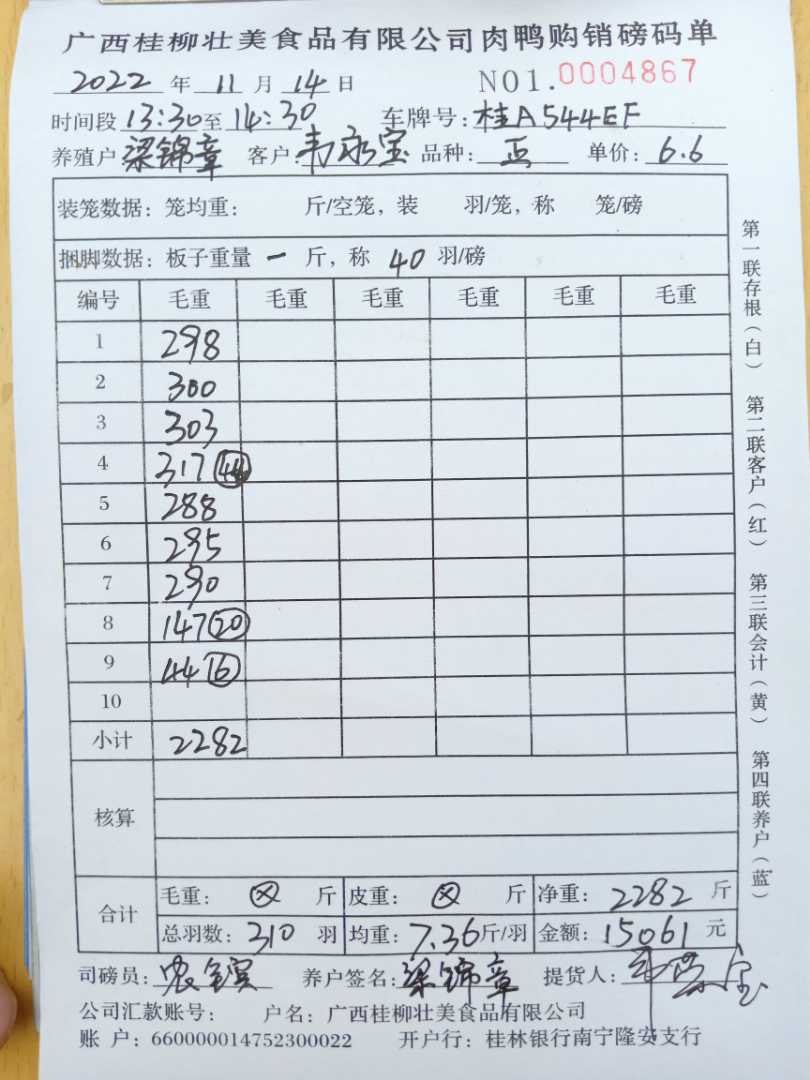 广西桂柳壮美食品有限公司肉鸭购销磅码单
2022 年 11 月 14 日 NO1.0004867
时间段 13:30 至 14:30 车牌号: 桂A544EF
养殖户 梁锦章 客户: 韦永宝 品种: 正 单价: 6.6
装笼数据: 笼均重: 斤/空笼, 装 羽/笼, 称 笼/磅
捆脚数据: 板子重量 一 斤, 称 40 羽/磅
编号 毛重 毛重 毛重 毛重 毛重 毛重
1 298
2 300
3 303
4 317 44
5 288
6 295
7 290
8 147 20
9 44 16
10
小计 2282
核算
合计 毛重: 斤 皮重: 斤 净重: 2282 斤
总羽数: 310 羽 均重: 7.36 斤/羽 金额: 15061 元
司磅员: 养户签名: 梁锦章 提货人:
公司汇款账号: 户名: 广西桂柳壮美食品有限公司
账 户: 660000014752300022 开户行: 桂林银行南宁隆安支行
第一联存根(白) 第二联客户(红) 第三联会计(黄) 第四联养户(蓝)